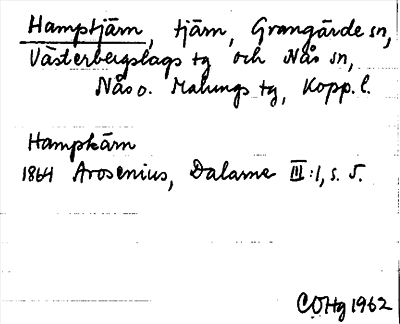 Hamptjärn, tjärn, Grangärde sn,
Västerbergslags tg och Nås sn,
Nås o. Malungs tg, Kopp. l.
Hampkärn
1864 Arosenius, Dalarne III:1, s. 5.
COHg 1962